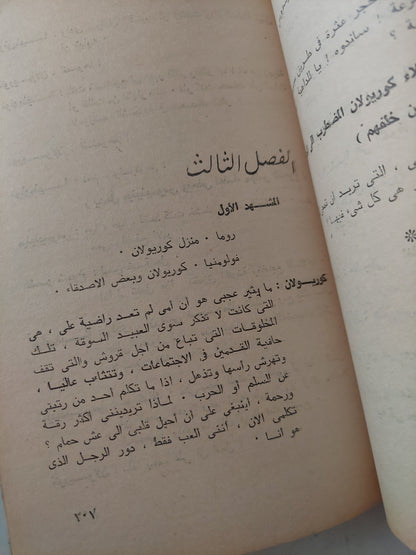 الفصل الثالث
المشهد الأول
روما ، منزل كوريولان ،
فولومنيا ، كوريولان وبعض الاصدقاء ،
كوريولان : ما يثير عجبى هو ان امى لم تعد راضية على ، هى
التى كانت لا تذكر سوى العبيد السوقة ، تلك
المخلوقات التى تباع من اجل قروش والتى تقف
حافية القدمين فى الاجتماعات ، وتتثاب عاليا ،
وتهرش راسها وتذهل ، اذا ما تكلم احد من رتبتى
عن السلم او الحرب ، لماذا تريديننى اكثر رقة
ورحمة ، اينبغى على ان احيل قلبى الى عش حمام ؟
تكلمى الان ، اننى العب فقط ، دور الرجل الذى
هو انا ،
٣٠٧
حجر عثرة فى طريق
ساندوه ! يا للذئاب
كوريولان المضطرب
خلفهم )
، التى تريد ان
هى كل شىء فيها